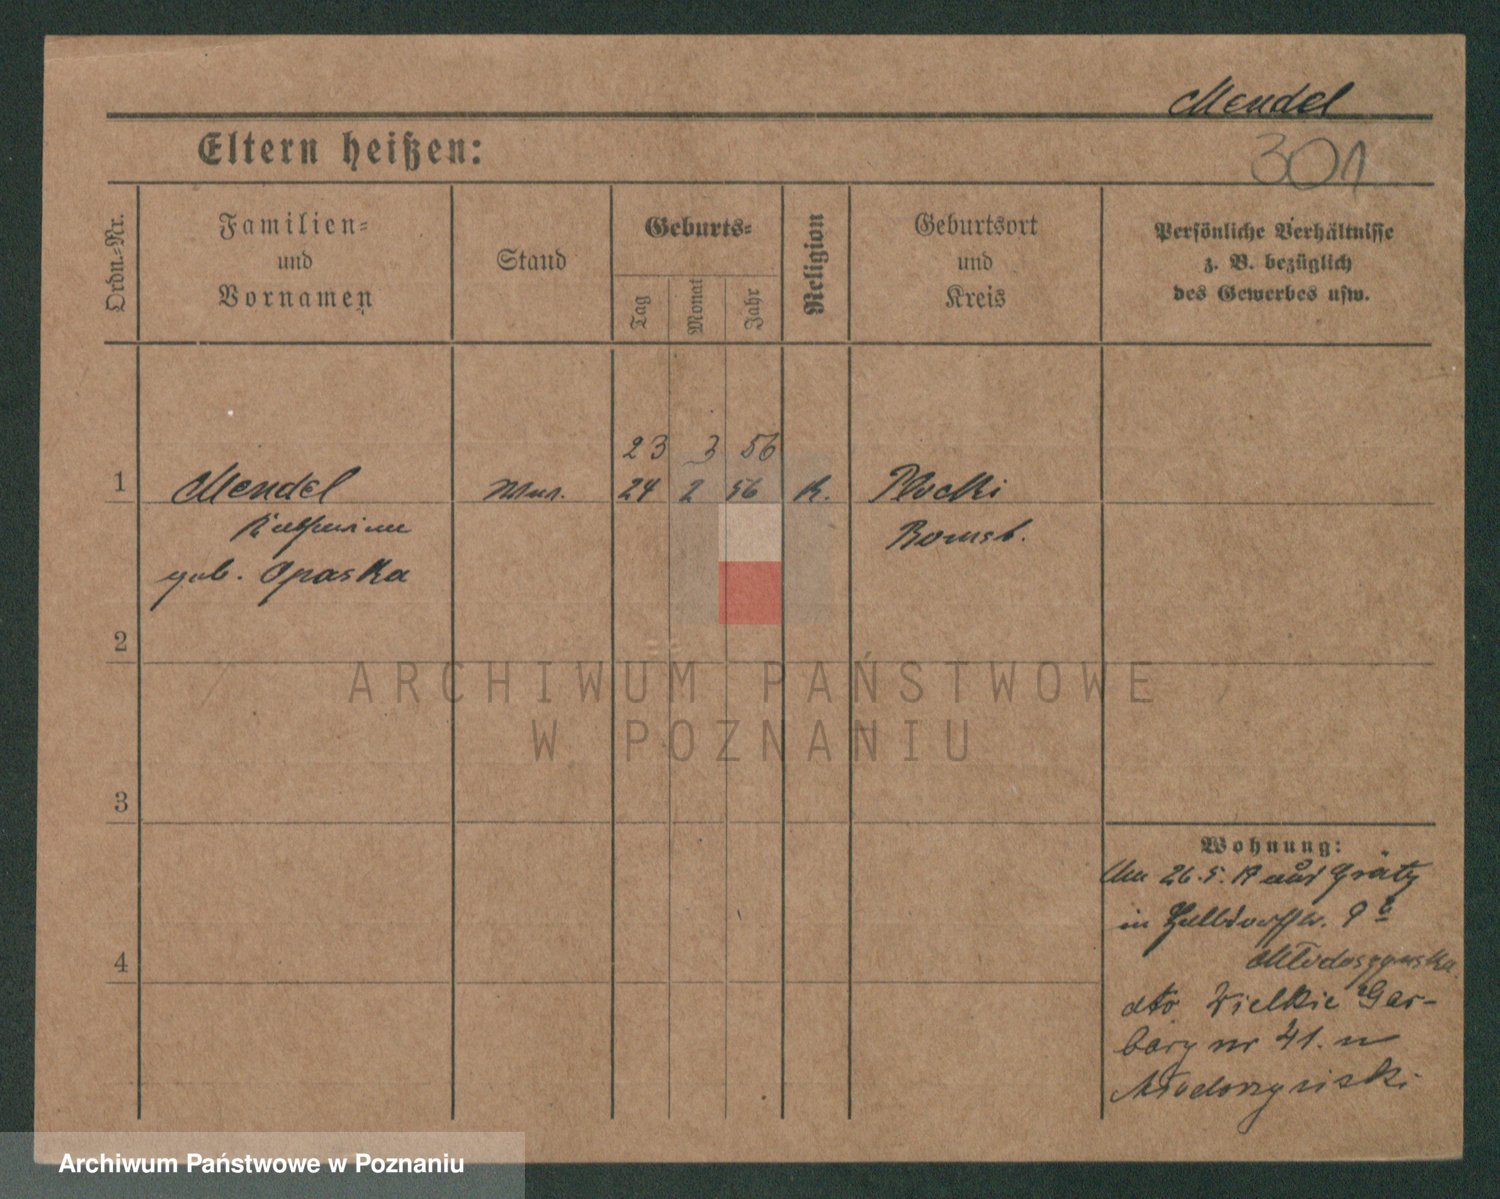 Mendel
Eltern heißen:
301
Ordn.-Nr.
Familien-
und
Vornamen
Stand
Geburts-
Tag
Monat
Jahr
Religion
Geburtsort
und
Kreis
Persönliche Verhältnisse
z. B. bezüglich
des Gewerbes usw.
23 3 56
1 Mendel Wwe. 24 2 56 K. Plocki
Katharina Bomst.
geb. Opaska
2
3
4
Wohnung:
Am 26.5.19 aus Grätz
in
Młodoszynska
dto Wielkie Gar-
bary nr 41. u
Młodoszyński
ARCHIWUM PAŃSTWOWE
W POZNANIU
Archiwum Państwowe w Poznaniu